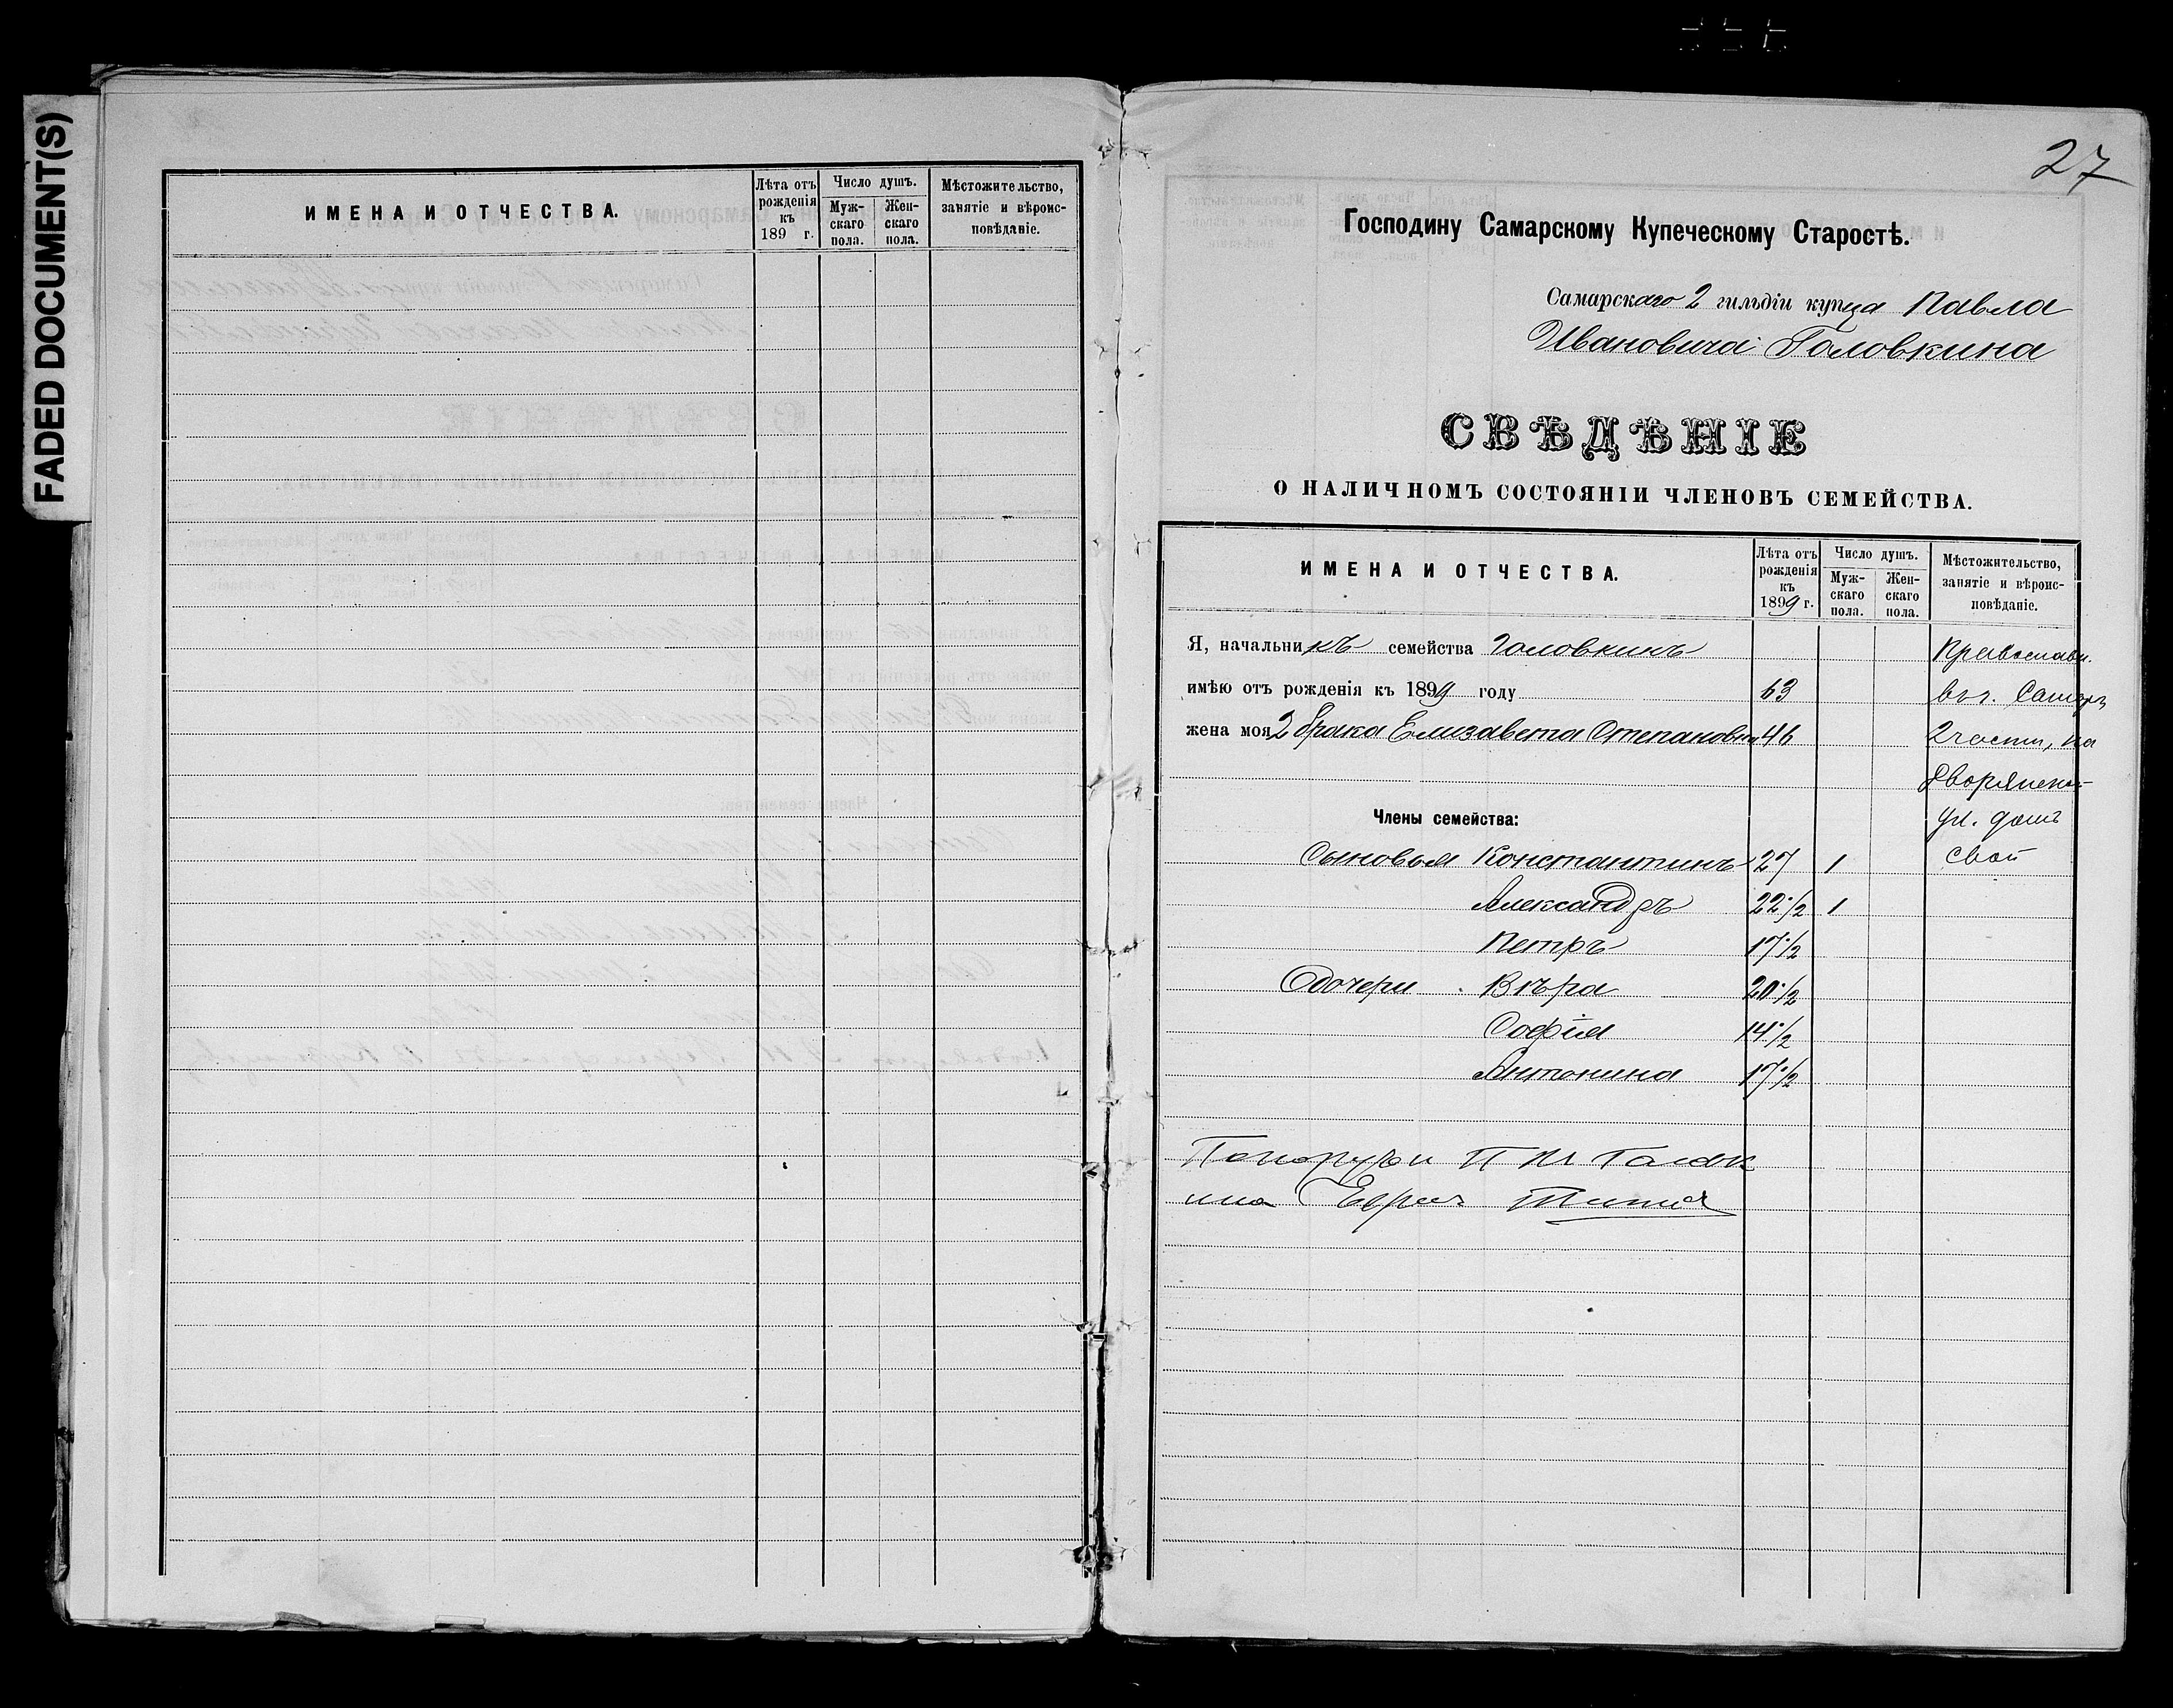 FADED DOCUMENT(S)
ИМЕНА И ОТЧЕСТВА.
Лѣта отъ рожденія къ 189 г.
Число душъ.
Муж-скаго пола.
Жен-скаго пола.
Мѣстожительство, занятіе и вѣроис-повѣданіе.
27
Господину Самарскому Купеческому Старостѣ.
Самарскаго 2 гильдіи купца Павла
Ивановича Головкина
СВѢДѢНІЕ
О НАЛИЧНОМЪ СОСТОЯНІИ ЧЛЕНОВЪ СЕМЕЙСТВА.
ИМЕНА И ОТЧЕСТВА.
Лѣта отъ рожденія къ 1899 г.
Число душъ.
Муж-скаго пола.
Жен-скаго пола.
Мѣстожительство, занятіе и вѣроис-повѣданіе.
Я, начальникъ семейства Головкинъ Православн.
имѣю отъ рожденія къ 1899 году 63 въ г. Самарѣ
жена моя 2 брака Елизавета Степановна 46 2 части, на
Дворянской
Члены семейства: ул. домъ
Сыновья Константинъ 27 1 свой
Александръ 22 1/2 1
Петръ 17 1/2
Дочери Вѣра 20 1/2
Софія 14 1/2
Антонина 17 1/2
П И Головк
ина